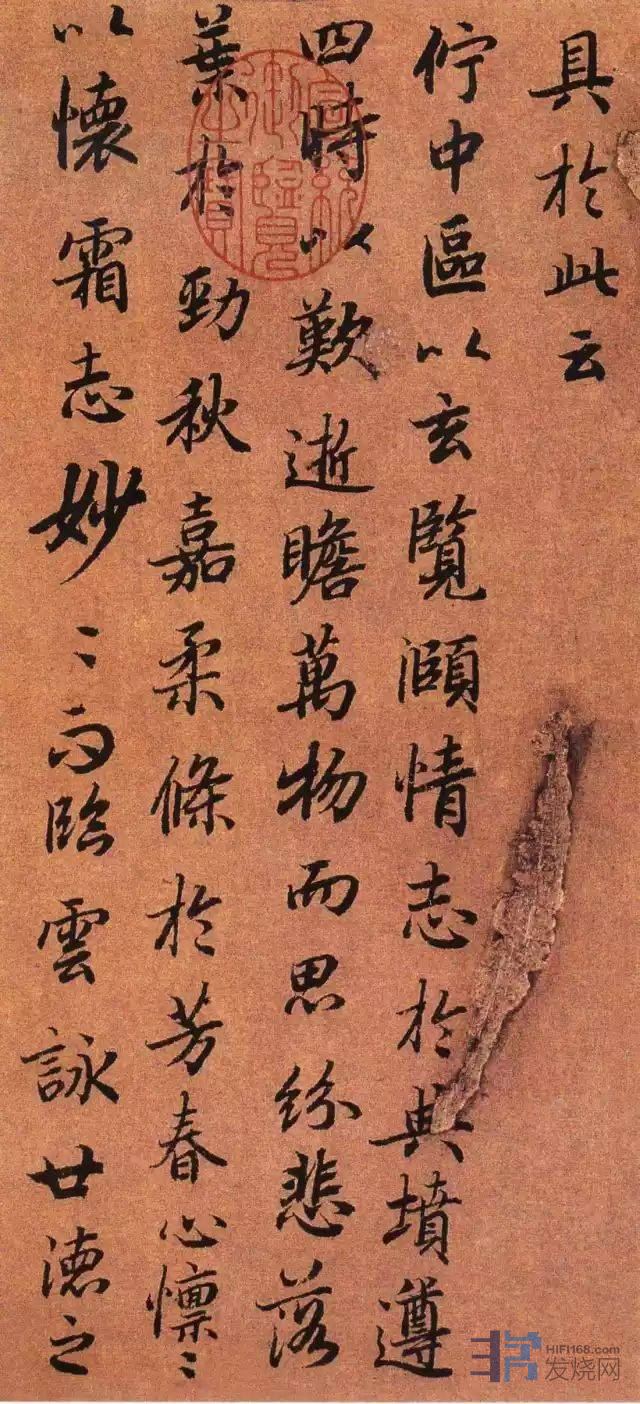 具於此云
佇中區以玄覽頤情志於典墳遵
四時以歎逝瞻萬物而思紛悲落
葉於勁秋嘉柔條於芳春心懍〻
以懷霜志妙〻而臨雲詠世德之
宣統
御覽
之寶
HIFI168.com
发烧网